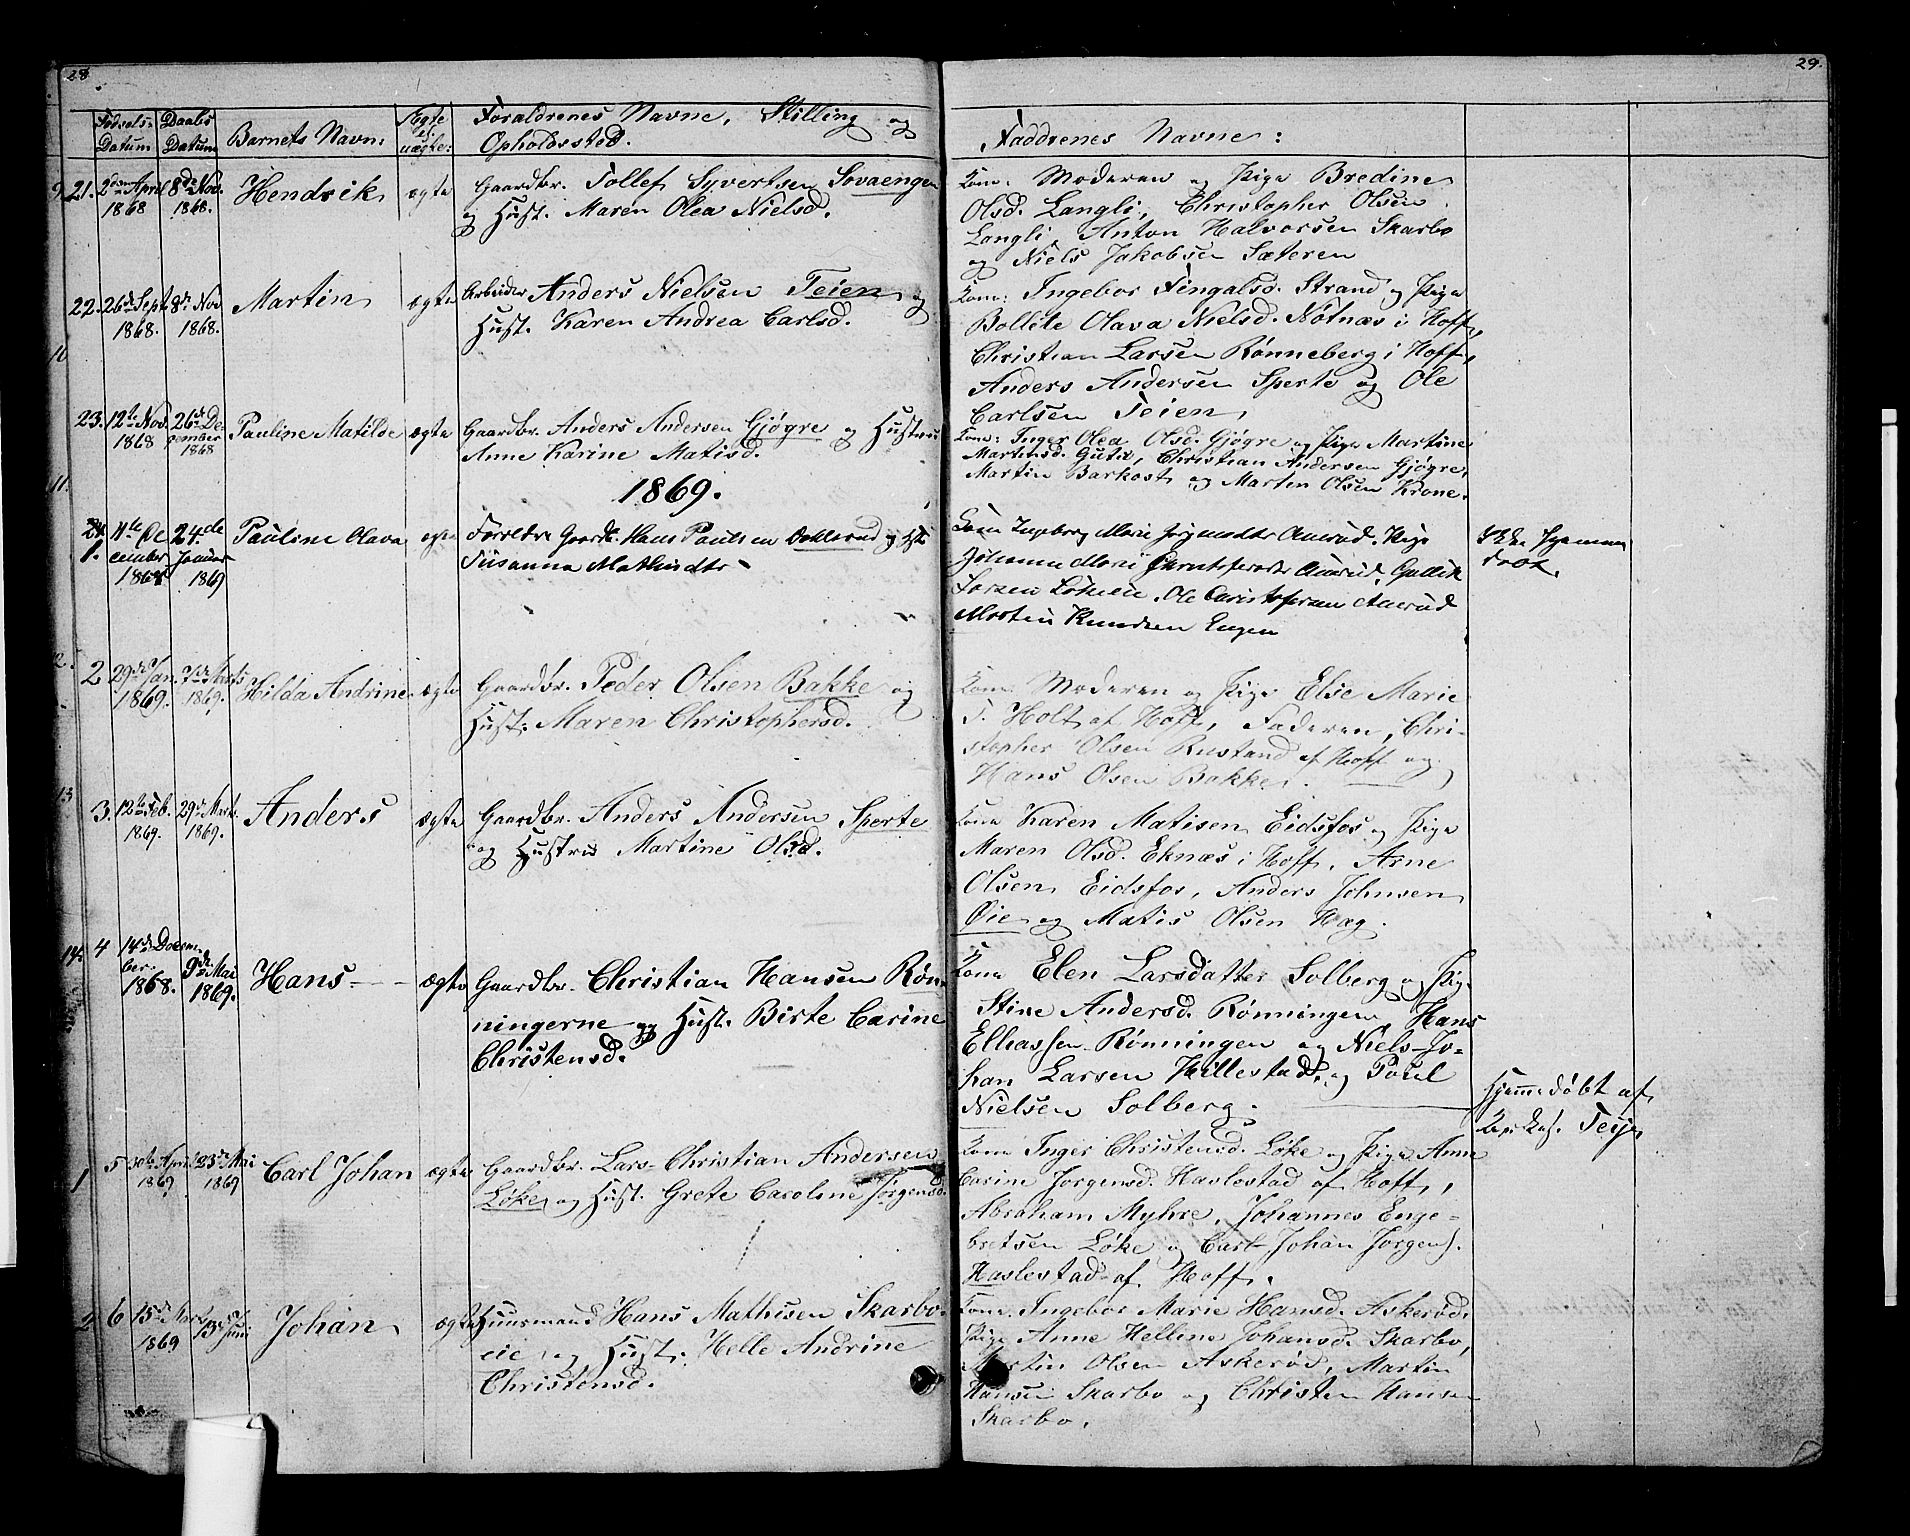 28
Fødsels-
Datum
Daabs
Datum
Barnets Navn:
Ægte
el.
uægte:
Foraldrenes Navne, Stilling og
Opholdssted.
21. 2den April 8de Nov. Hendrik ægte Gaardbr. Tollef Syvertsen Sovaengen
1868 1868. og Hust. Maren Olea Nielsd.
22. 26de Sept 8de Nov Martin ægte Arbeider Anders Nielsen Teien og
1868. 1868. Hust. Karen Andrea Carlsd.
10
23. 12te Nov. 26de De- Pauline Matilde ægte Gaardbr. Anders Andersen Gjøgre og Hustru
1868 cember 1868 Anne Karine Matisd.
11.
1869.
24.
1. 4te De 24de Pauline Olava ægte Forældre Gaardb. Hans Paulsen og Hst.
cember Januar Susanna Mathisdtr
1868 1869
2 29de Jan. 7de Marts Hilda Andrine ægte Gaardbr. Peder Olsen Bakke og
1869. 1869. Hust. Maren Christophersd.
13
3. 12te Feb. 29de Marts Anders ægte Gaardbr. Anders Andersen Sperte
1869. 1869. og Hustru Martine Olsd.
14. 4 14de Decem- 9de Mai Hans ægte Gaardbr. Christian Hansen Røn-
ber 1868. 1869. ningerne og Hust. Birte Carine
Christensd.
1 5 30te April 23de Mai Carl Johan ægte Gaardbr. Lars Christian Andersen
1869 1869 Løke og Hust. Grete Caroline Jørgensd.
2 6 15de Marts 13de Juni Johan ægte Huusmand Hans Mathisen Skarbo-
1869 eie og Hust. Helle Andrine
Christensd.
29.
Faddrenes Navne:
Kone: Moderen og Pige Bredine
Olsd. Langli, Christopher Olsen
Langli, Anton Halvorsen Skarbo
og Niels Jakobsen Sæteren
Kone: Ingebor Fingalsd. Strand og Pige
Bollete Olava Nielsd. Nøtnæs i Hoff,
Christian Larsen Rønneberg i Hoff,
Anders Andersen Sperte og Ole
Carlsen Teien,
Kone: Inger Olea Olsd. Gjøgre og Pige Martine
Martensd. Gutu, Christian Andersen Gjøgre,
Martin Barkost og Marten Olsen Krone.
Kone Ingeborg Marie Amrud. Pige
Johanne Marie Aamrud, Gullik
Larsen Løkeie. Ole Christofersen Aamrud
Morten Knudsen Engen
Kone Moderen og Pige Else Marie
T. Holt af Hoff, Faderen, Chri-
stopher Olsen Rustand af Hoff og
Hans Olsen Bakke.
Kone Karen Matisen Eidsfos og Pige
Maren Olsd. Eknæs i Hoff, Arne
Olsen Eidsfos, Anders Johnsen
Øie og Matis Olsen Hag.
Kone Elen Larsdatter Solberg og Pige
Stine Andersd. Rønningen, Hans
Elliassen Rønningen og Niels Jo-
han Larsen Hillestad, og Poul
Nielsen Solberg.
Hjemmedøbt af
Teie
Kone Inger Christensd. Løke og Pige Anne
Carine Jorgensd. Haslestad af Hoff,
Abraham Myhre, Johannes Enge-
bretsen Løke og Carl Johan Jorgens.
Haslestad af Hoff.
Kone Ingebor Marie Hansd. Askerød.
Pige Anne Helline Johansd. Skarbo,
Martin Olsen Askerød, Martin
Hansen Skarbo og Christen Hansen
Skarbo.